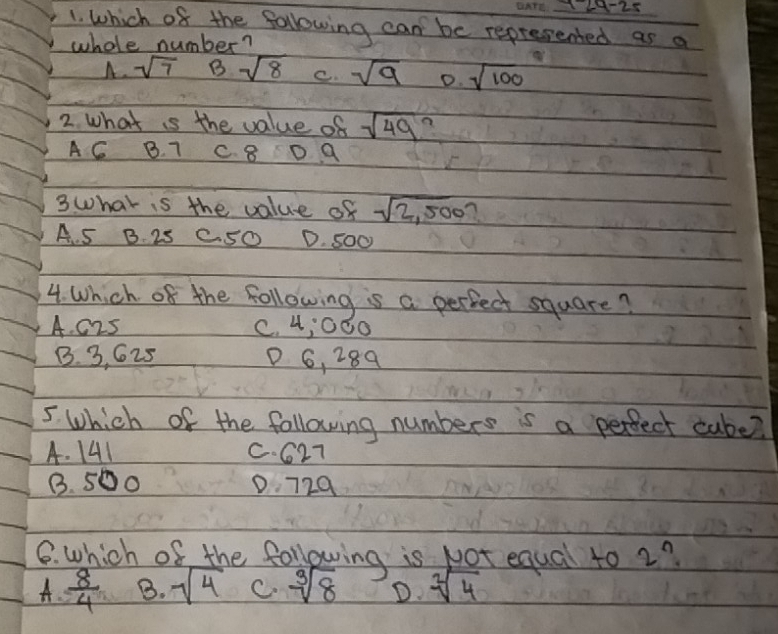 DATE 9-29-25
1. Which of the following can be represented as a
whole number?
A. √7 B. √8 C. √9 D. √100
2. What is the value of √49?
A. 6 B. 7 C. 8 D. 9
3. What is the value of √2,500?
A. 5 B. 25 C. 50 D. 500
4. Which of the following is a perfect square?
A. 625 C. 4,000
B. 3,625 D. 6,289
5. Which of the following numbers is a perfect cube?
A. 141 C. 627
B. 500 D. 729
6. Which of the following is NOT equal to 2?
A. 8/4 B. √4 C. ∛8 D. ∛4